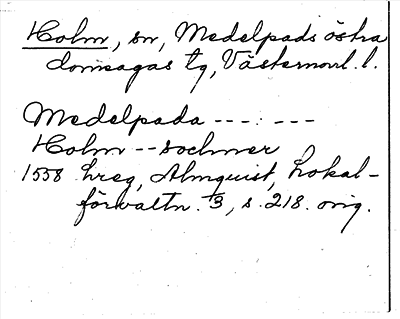 Holm, sn, Medelpads östra
domsagas tg, Västernorrl. l.
Medelpada ---.---
Holm -- sochner
1558 hreg, Almquist, Lokal-
förvaltn. 3, s. 218. orig.